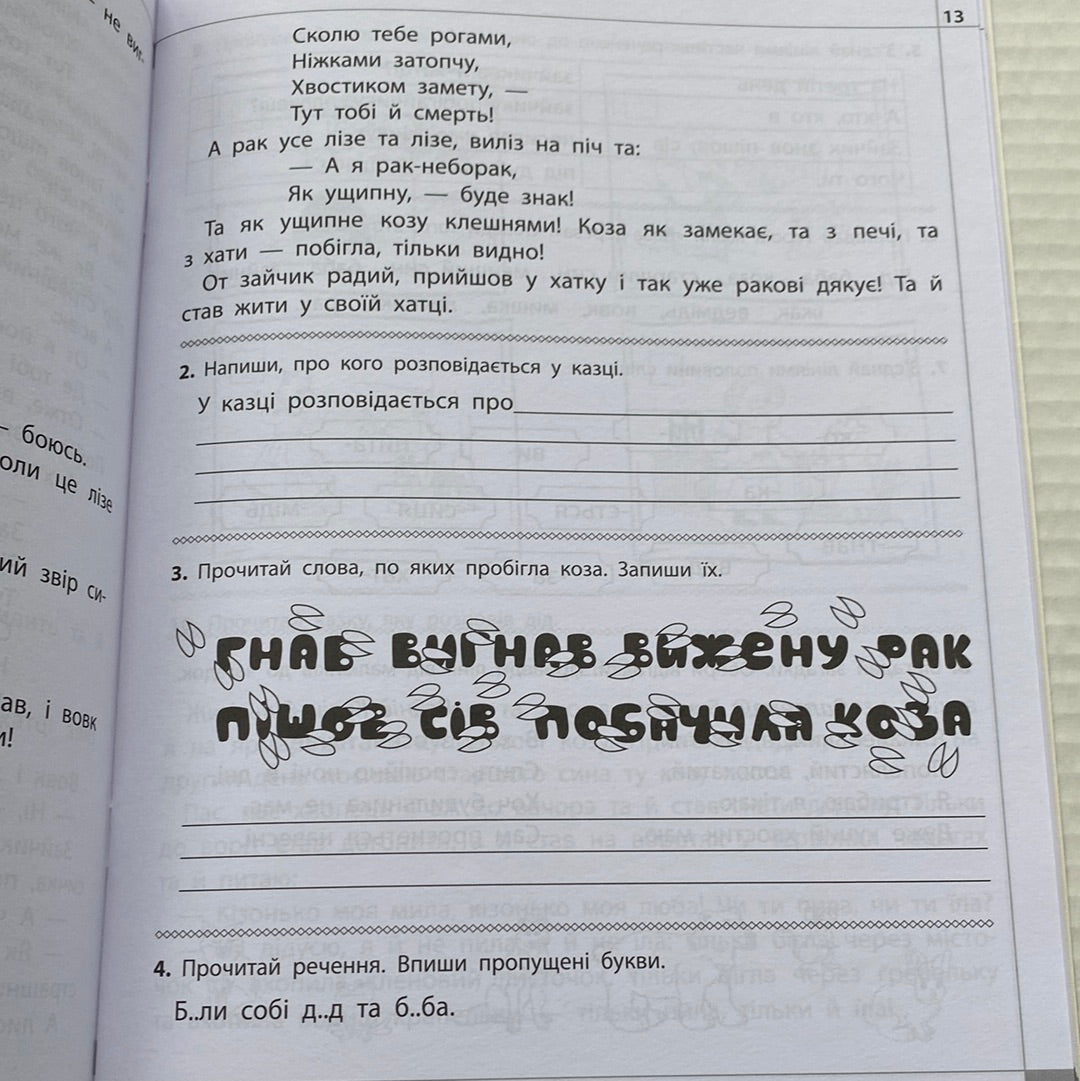 не виг-
13
Сколю тебе рогами,
Ніжками затопчу,
Хвостиком замету, —
Тут тобі й смерть!
А рак усе лізе та лізе, виліз на піч та:
— А я рак-неборак,
Як ущипну, — буде знак!
Та як ущипне козу клешнями! Коза як замекає, та з печі, та
з хати — побігла, тільки видно!
От зайчик радий, прийшов у хатку і так уже ракові дякує! Та й
став жити у своїй хатці.
2. Напиши, про кого розповідається у казці.
У казці розповідається про
– боюсь.
оли це лізе
3. Прочитай слова, по яких пробігла коза. Запиши їх.
ий звір си-
ГНАВ ВИГНАВ ВИЖЕНУ РАК
ПІШОВ СІВ ПОБАЧИЛА КОЗА
ав, і вовк
и!
4. Прочитай речення. Впиши пропущені букви.
Б..ли собі д..д та б..ба.